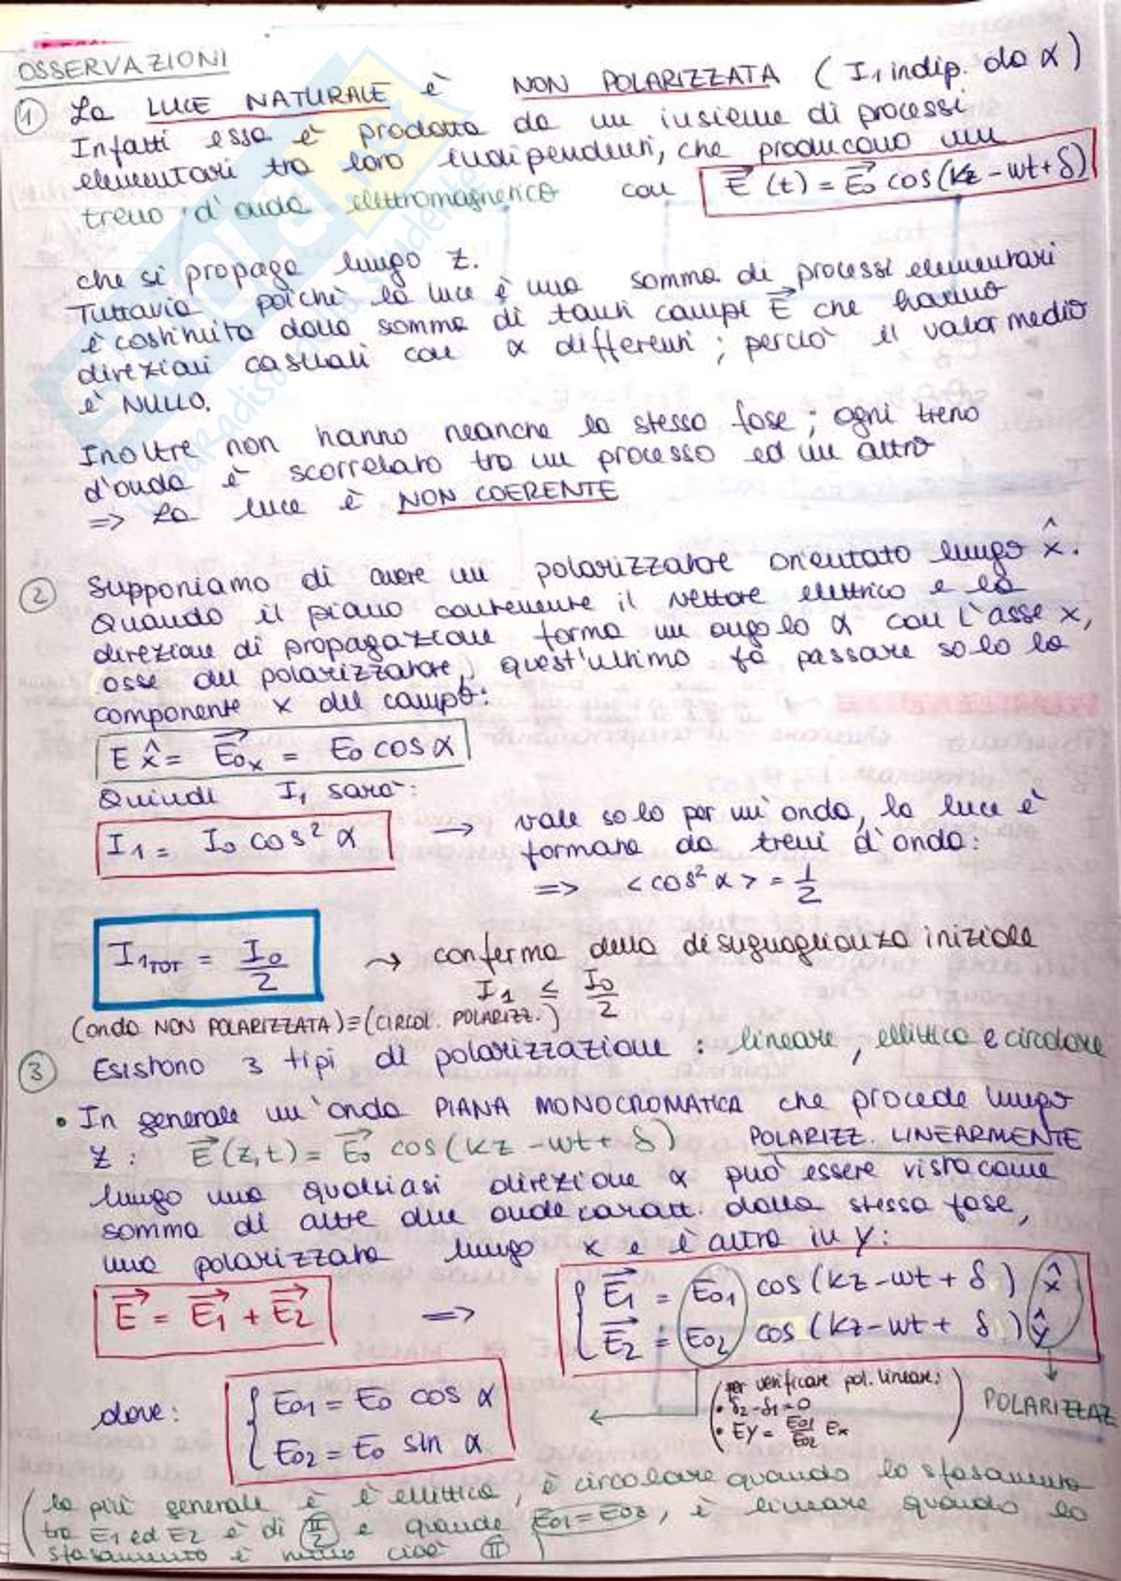 OSSERVAZIONI
① La LUCE NATURALE è NON POLARIZZATA ( I₁ indip. da α )
Infatti essa è prodotta da un insieme di processi
elementari tra loro indipendenti, che producono un
treno d'onda elettromagnetico con E⃗ (t) = E⃗₀ cos(kz - wt + δ)
che si propaga lungo z.
Tuttavia poichè la luce è una somma di processi elementari
è costituita dalla somma di tanti campi E⃗ che hanno
direzioni casuali con α differenti ; perciò il valor medio
è NULLO.
Inoltre non hanno neanche la stessa fase ; ogni treno
d'onda è scorrelato tra un processo ed un altro
=> La luce è NON COERENTE
② Supponiamo di avere un polarizzatore orientato lungo x̂.
Quando il piano contenente il vettore elettrico e la
direzione di propagazione forma un angolo α con l'asse x,
asse del polarizzatore, quest'ultimo fa passare solo la
componente x del campo:
E x̂ = E⃗₀ₓ = E₀ cos α
Quindi I₁ sarà:
I₁ = I₀ cos² α → vale solo per un'onda, la luce è
formata da treni d'onda:
=> < cos² α > = 1/2
I₁TOT = I₀/2 → conferma della disuguaglianza iniziale
I₁ ≤ I₀/2
(onda NON POLARIZZATA) ≡ (CIRCOL. POLARIZZ.)
③ Esistono 3 tipi di polarizzazione : lineare, ellittica e circolare
• In generale un'onda PIANA MONOCROMATICA che procede lungo
z : E⃗(z,t) = E⃗₀ cos(kz - wt + δ) POLARIZZ. LINEARMENTE
lungo una qualsiasi direzione α può essere vista come
somma di altre due onde caratt. dalla stessa fase,
una polarizzata lungo x e l'altra in y:
E⃗ = E⃗₁ + E⃗₂ => { E⃗₁ = E₀₁ cos(kz - wt + δ) x̂
E⃗₂ = E₀₂ cos(kz - wt + δ) ŷ
dove: { E₀₁ = E₀ cos α
E₀₂ = E₀ sin α
(per verificare pol. lineare:
• δ₂ - δ₁ = 0
• Ey = E₀₁/E₀₂ Ex)
POLARIZZAZ
(la più generale è l'ellittica, è circolare quando lo sfasamento
tra E₁ ed E₂ è di π/2 e quando E₀₁ = E₀₂, è lineare quando lo
sfasamento è nullo cioè π